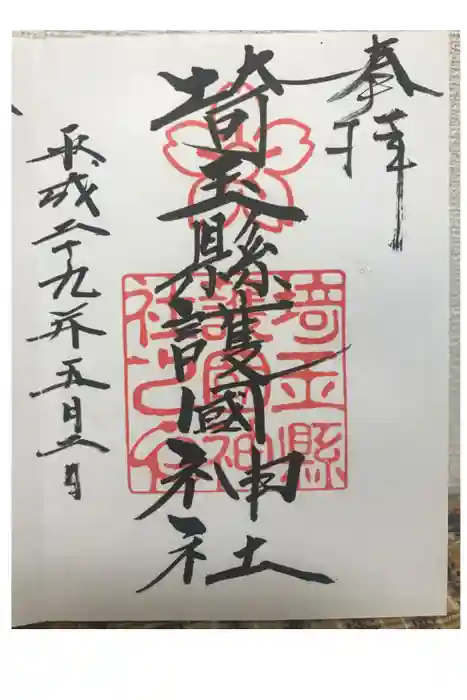 奉拝
埼玉縣護國神社
埼玉縣
護國神
社之印
平成二十九年五月二日